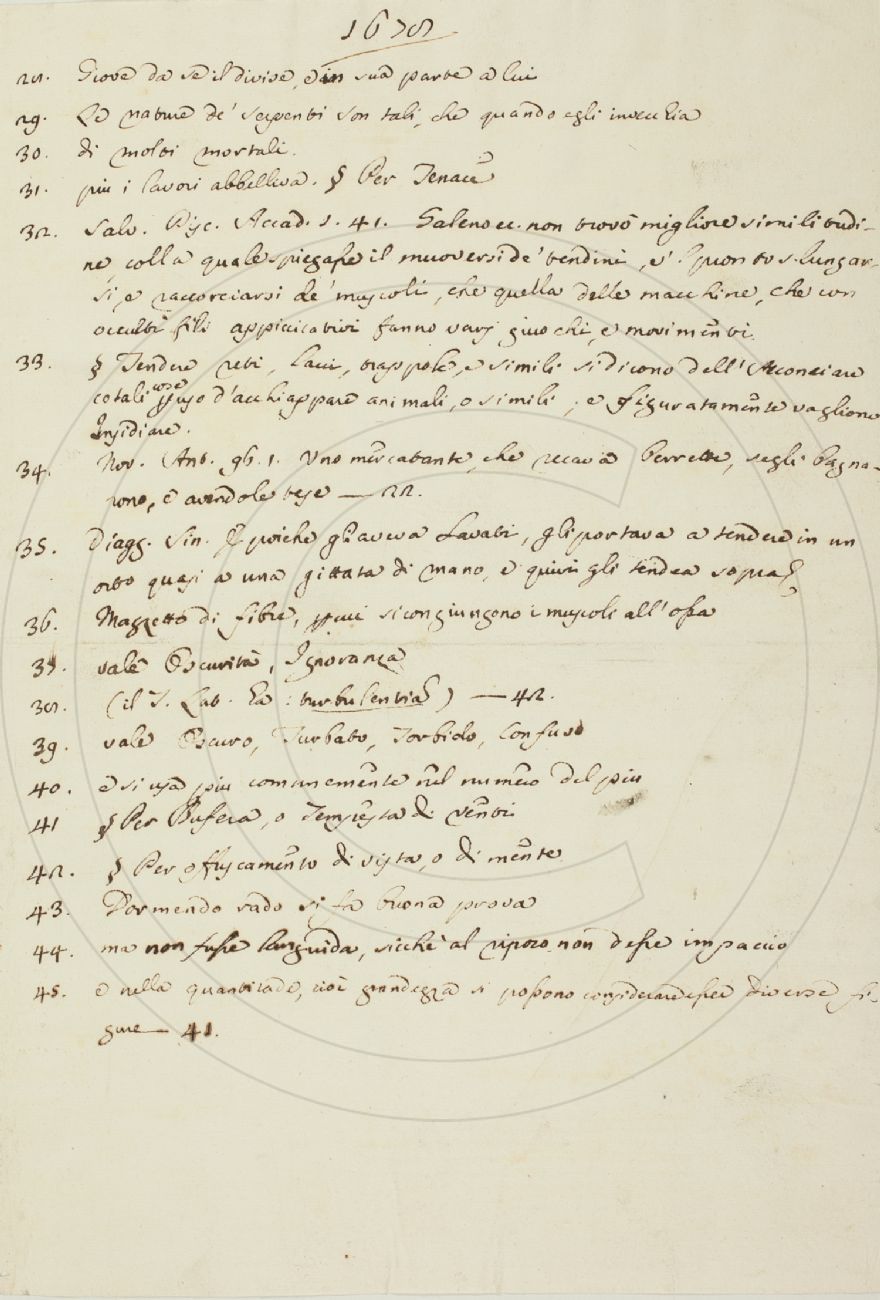 1678
28. Giove da se il divise, e in sua parte a lui
29. Le nature de' serpenti son tali, che quando egli invecchia
30. di molti mortali.
31. più i lavori abbelliva. § Per Tenace
32. Salv. Disc. Accad. 1. 41. Galeno ec. non trovò migliore similitudi-
ne, colla quale spiegasse il muoversi de' tendini, e l' slungar-
si, e raccorciarsi de' muscoli, che quella delle macchine, che con
occulti fili appiccicativi fanno varj giuochi, e movimenti.
33. § Tendere reti, lacci, trappole, e simili si dicono dell'Acconciare
cotali cose uso d'acchiappare animali, o simili; e figuratamente vagliono
Insidiare.
34. Nov. Ant. 96. 1. Uno mercatante, che recava berrette, segli bagna-
rono, e avendole tese — 22.
35. Viagg. Sin. E poichè gli aveva lavati, gli portava a tendere in un
orto quasi a una gittata di mano, e quivi gli tendea sopra
36. Mazzetto di fibre, cui si congiungono i muscoli all'ossa
37. vale Oscurità, Ignoranza
38. (il T. Lat. ha: turbulentia) — 42.
39. vale Oscuro, Turbato, Torbido, Confuso
40. e si usa più comunemente nel numero del più
41 § Per Bufera, o Tempesta di venti
42. § Per offuscamento di vista, o di mente
43. Dormendo rado si fa buona prova
44. ma non fosse languida, sicchè al riposo non desse impaccio
45. e nella quantitade, cioè grandezza si possono considerare diverse fi-
gure — 41.